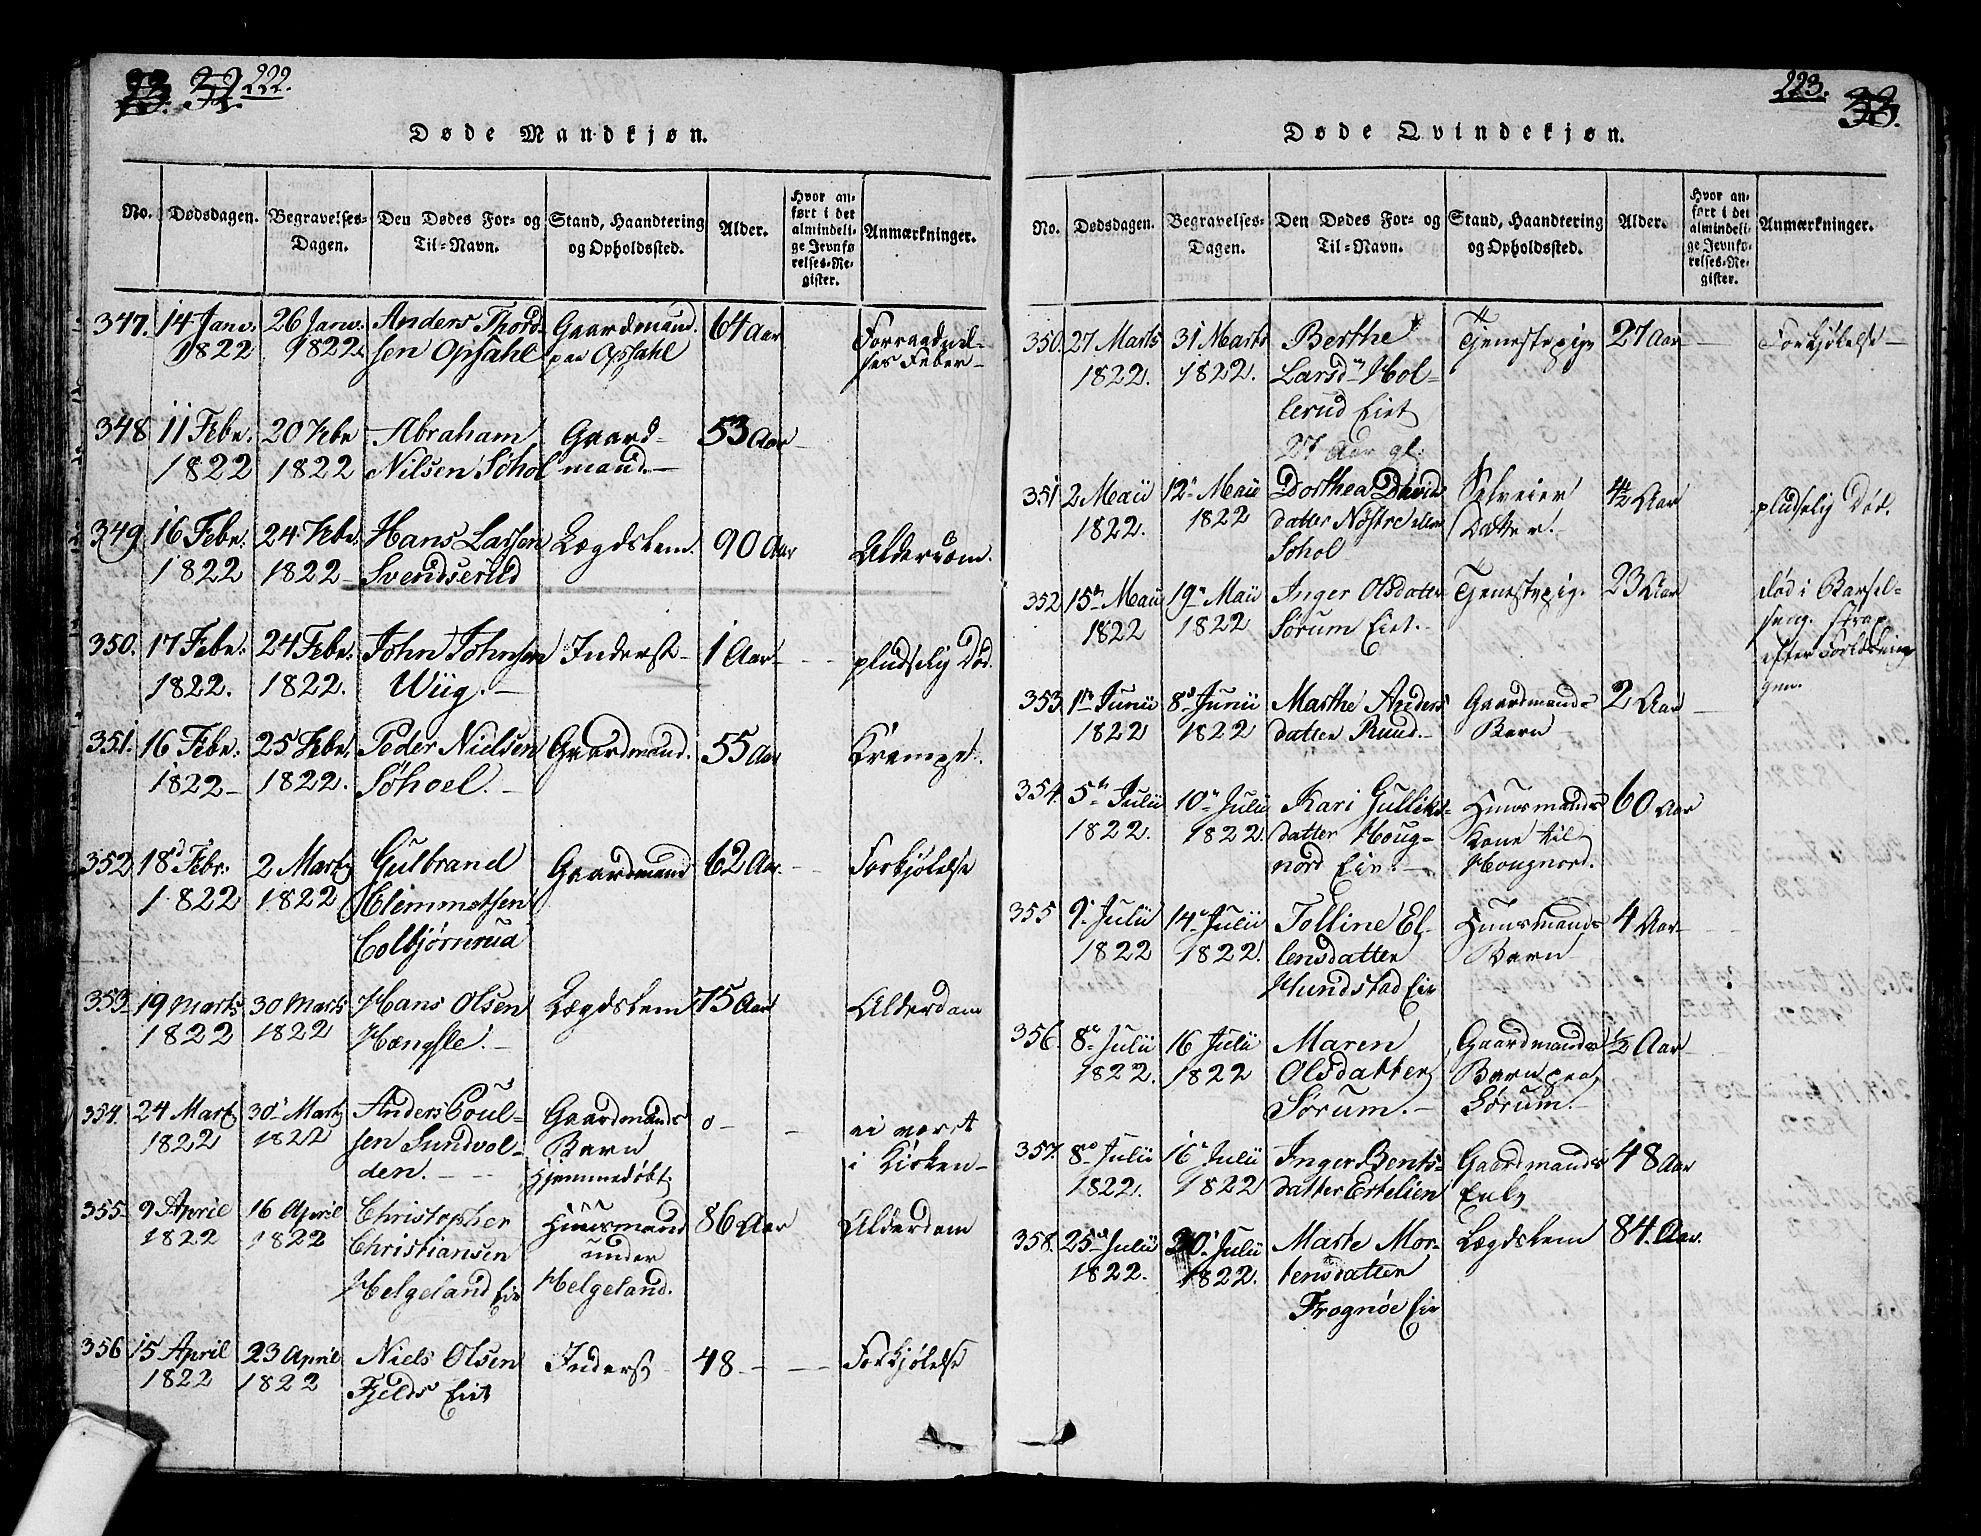 222.
Døde Mandkjøn.
No. Dødsdagen. Begravelses-Dagen. Den Dødes For- og Til-Navn. Stand, Haandtering og Opholdssted. Alder. Hvor anført i det almindelige Jevnførelses-Register. Anmærkninger.
347. 14 Janv. 26 Janv. Anders Thord- Gaardmand. 64 Aar
1822 1822 sen Opsahl paa Opsahl
ses Feber
348 11 Febr. 20 Febr Abraham Gaard- 53 Aar
1822 1822 Nilsen Sohol mand.
349. 16 Febr. 24 Febr. Hans Larsen Lægdslem. 90 Aar Alderdom.
1822 1822 Svendserud
350. 17 Febr. 24 Febr. John Johnsen Inderst 1 Aar pludselig Død.
1822. 1822. Wiig.
351. 16 Febr. 25 Febr. Peder Nielsen Gaardmand. 55 Aar Krampe.
1822 1822. Søhoel.
352 18 Febr. 2 Marty Gulbrand Gaardmand 62 Aar. Forkjølelse
1822 1822 Clemmetsen
Colbjørnrud
353 19 Marts 30 Marts Hans Olsen Lægdslem 75 Aar Alderdom
1822 1822 Hængsle.
354. 24 Mart 30 Marty Anders Poul- Gaardmands 0 ei været
1822 1822 sen Sundvol- Barn i Kirken
den. Hjemmedøbt.
355 9 April 16 April Christopher Huusmand 86 Aar Alderdom
1822 1822 Christiansen under
Helgeland Eie Helgeland.
356 15 April 23 April Niels Olsen Inderst 48 Forkjølelse
1822 1822 Fjelds Eiet
223.
Døde Qvindekjøn.
No. Dødsdagen. Begravelses-Dagen. Den Dødes For- og Til-Navn. Stand, Haandtering og Opholdssted. Alder. Hvor anført i det almindelige Jevnførelses-Register. Anmærkninger.
350. 27 Marts 31 Marts Berthe Tjenestepige 27 Aar Forkjølelse
1822. 1822. Larsd. Hol-
lerud Eiet
27 Aar gl.
351 2 Maii 12 Maii Dorthea David Selveier 4½ Aar pludselig Død.
1822. 1822 datter Nøstre eller Datter.
Sohol
352 15 Maii 19 Maii Inger Olsdatter Tjenestepig. 23 Aar død i Barsel-
1822 1822 Sørum Eiet. seng, strax
efter Forløsnin-
gen.
353 1 Junii 8 Junii Marthe Anders Gaardmands 2 Aar
1822 1822 datter Ruud. Barn
354. 5 Julii 10 Julii Kari Gulliks- Huusmands 60 Aar
1822. 1822. datter Houg- Kone til
nord Eie. Hougnord.
355 9 Julii 14 Julii Tolline El- Huusmands 4 Aar
1822 1822. lensdatter Barn
Hundstad Eie
356. 8 Julii 16 Julii Maren Gaardmands ½ Aar
1822. 1822 Olsdatter Barn paa
Sørum. Sørum.
357. 8 Julii 16 Julii Inger Bents- Gaardmands 48 Aar
1822. 1822 datter Estelien Enke
358. 25 Julii 30 Julii Marte Mor- Lægdslem 84. Aar.
1822. 1822. tensdatter
Frognøe Eie